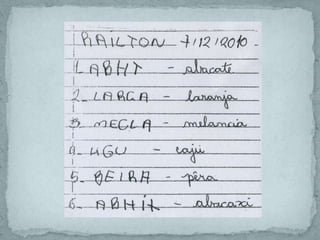 RAILTON 7/12/2010.
1. ABHT - abacate
2. LARGA - laranja
3. MECLA - melancia
4. UGU - cajú
5. BEIRA - pêra
6. ABHIX - abacaxi